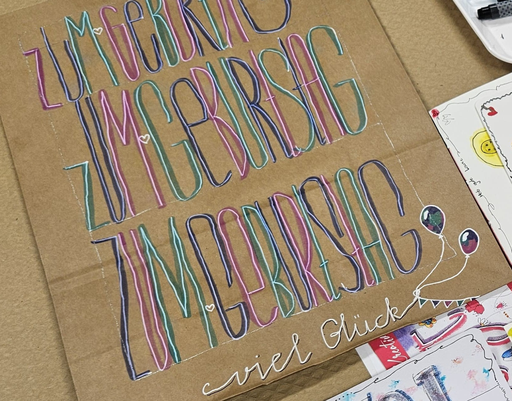 ZUM GEBURTSTAG
ZUM GEBURTSTAG
ZUM GEBURTSTAG
viel Glück